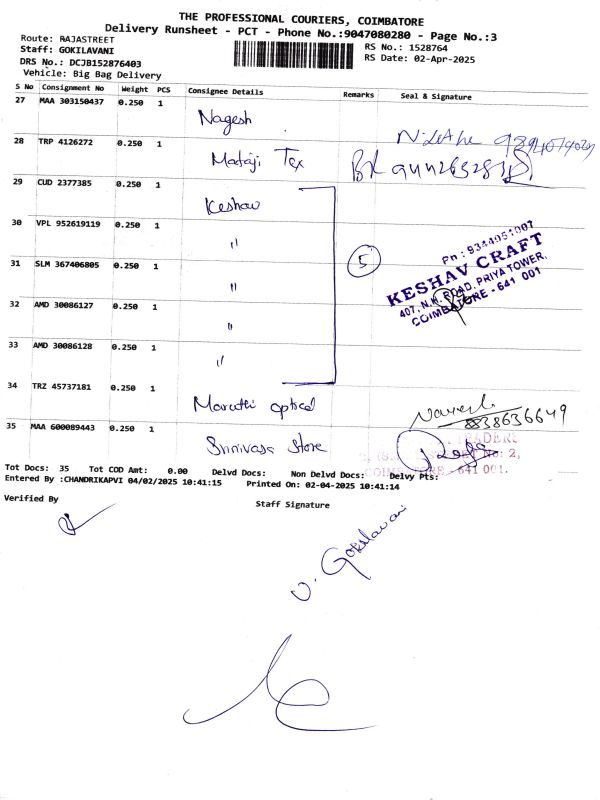 THE PROFESSIONAL COURIERS, COIMBATORE
Delivery Runsheet - PCT - Phone No.:9047080280 - Page No.:3
Route: RAJASTREET
Staff: GOKILAVANI
RS No.: 1528764
DRS No.: DCJB152876403
RS Date: 02-Apr-2025
Vehicle: Big Bag Delivery
S No Consignment No Weight PCS Consignee Details Remarks Seal & Signature
27 MAA 303150437 0.250 1 Nagesh
28 TRP 4126272 0.250 1 Mataji Tex
29 CUD 2377385 0.250 1 Keshav
30 VPL 952619119 0.250 1 "
5
Ph : 9344951007
KESHAV CRAFT
407, N.H. ROAD, PRIYA TOWER,
COIMBATORE - 641 001
31 SLM 367406805 0.250 1 "
32 AMD 30086127 0.250 1 "
33 AMD 30086128 0.250 1 "
34 TRZ 45737181 0.250 1 Maruthi optical
8838636649
35 MAA 600089443 0.250 1 Srinivasa Store
TRADERS
No: 2,
COIMBATORE - 641 001.
Tot Docs: 35 Tot COD Amt: 0.00 Delvd Docs: Non Delvd Docs: Delvy Pts:
Entered By :CHANDRIKAPVI 04/02/2025 10:41:15 Printed On: 02-04-2025 10:41:14
Verified By
Staff Signature
V. Gokilavani